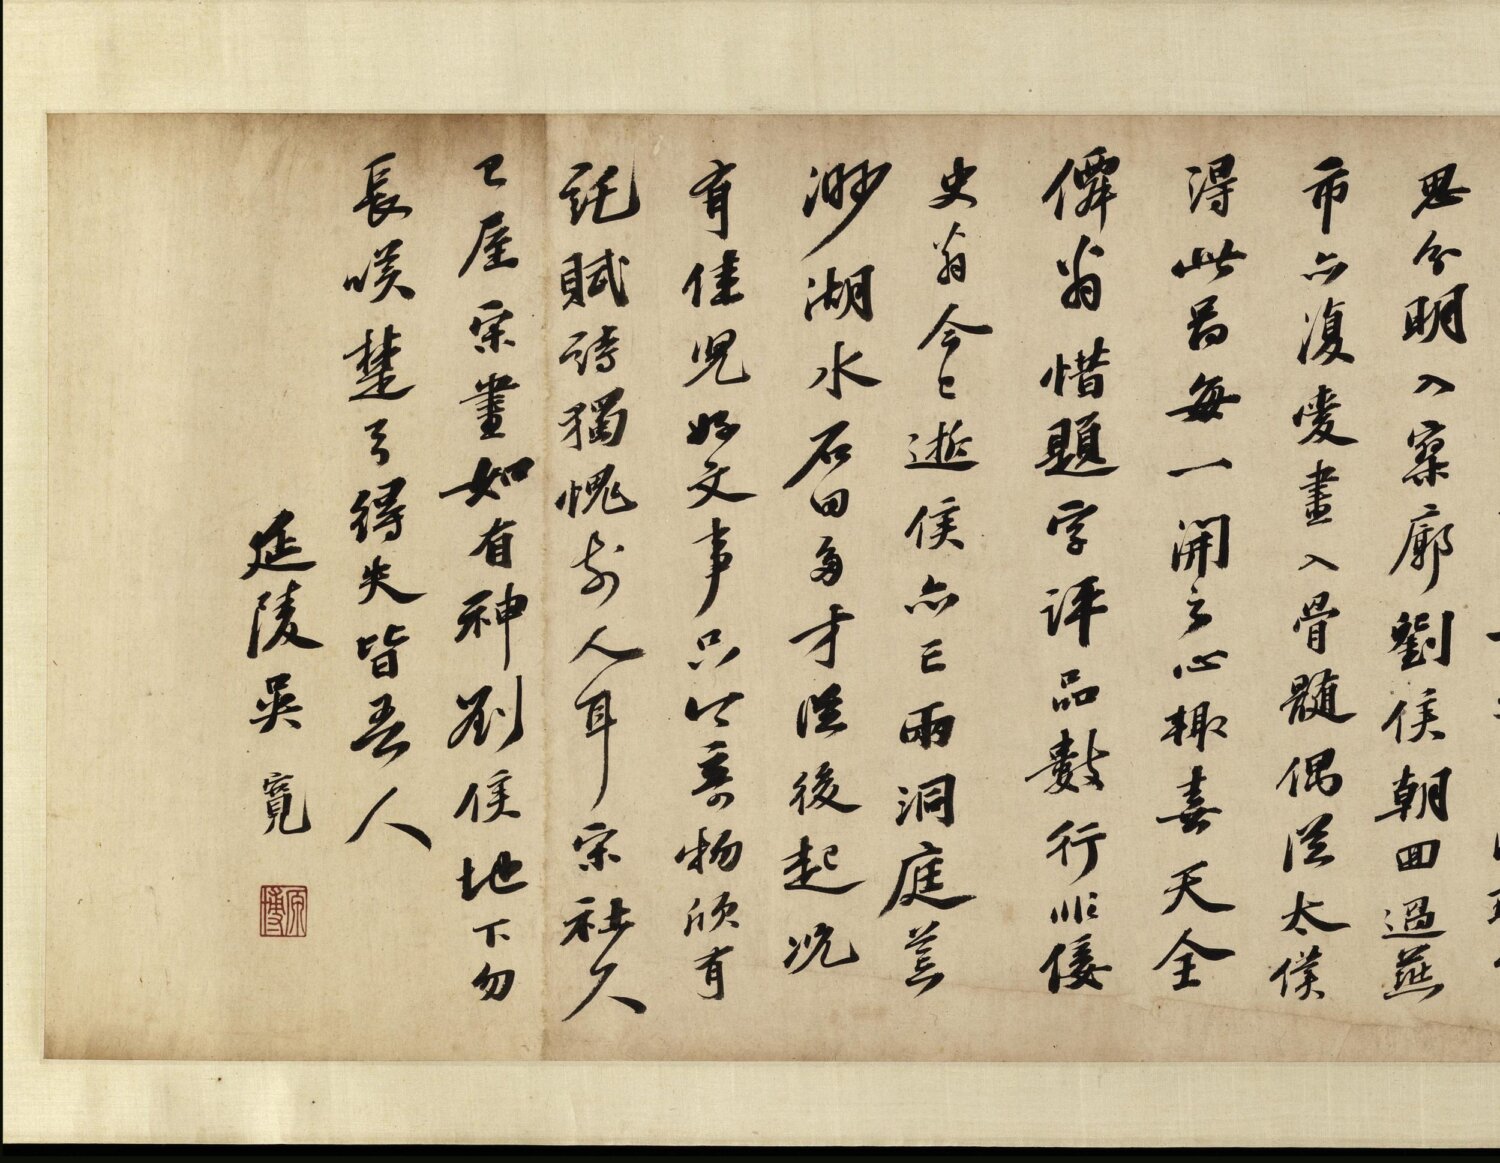 思分明入寥廓劉侯朝回過燕
市亦復愛畫入骨髓偶從太僕
得此啚每一開之心輒喜天全
僊翁惜題字評品數行非
史翁今已逝侯亦亡兩洞庭荒
渺湖水石田多才從後起況
有佳兒好文事只今奇物欣有
託賦詩獨愧前人耳宋社久
已屋宋畫如有神劉侯地下勿
長嘆楚弓得失皆吾人
延陵吳寬
原博